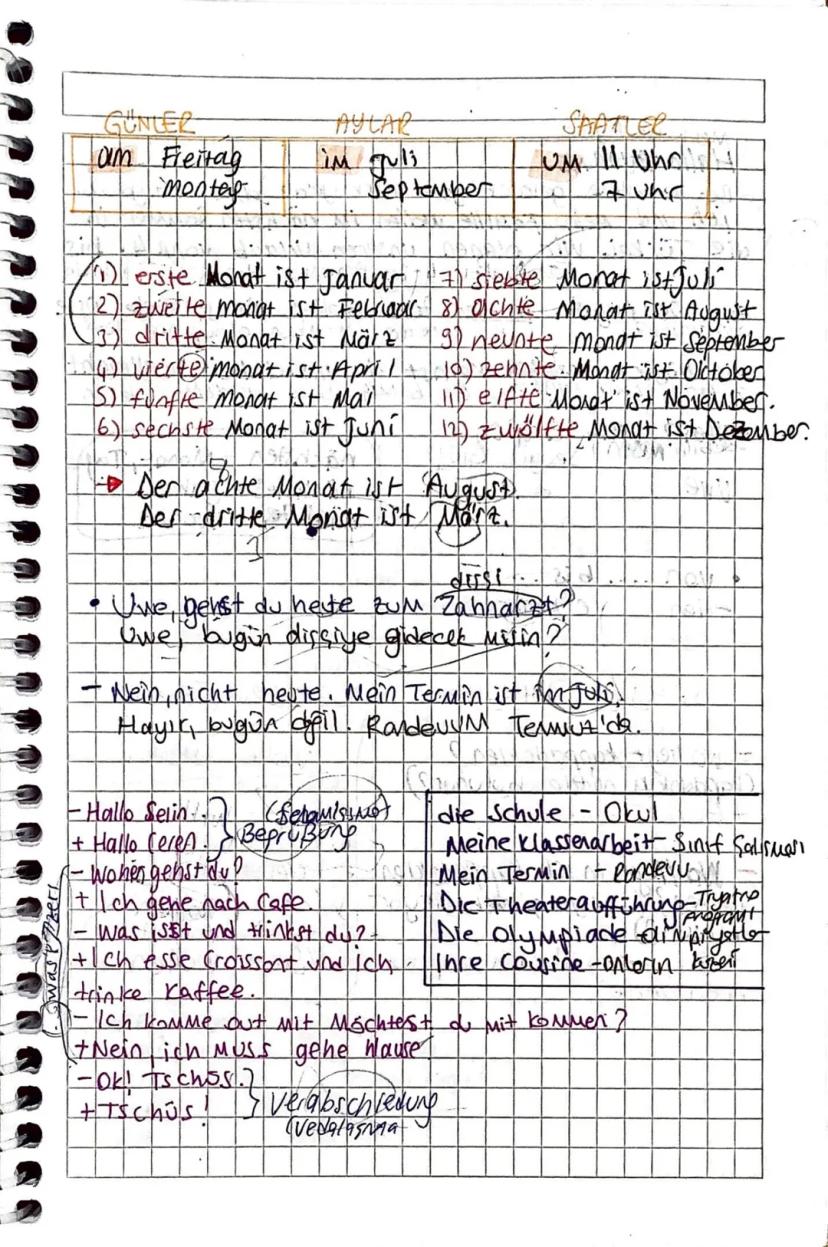 GÜNLER AYLAR SAATLER
am Freitag im Juli um 11 Uhr
Montag September 7 Uhr
1) erste Monat ist Januar
2) zweite monat ist Februar
3) dritte Monat ist März
4) vierte monat ist April
5) fünfte monat ist Mai
6) sechste Monat ist Juni
7) siebte Monat ist Juli
8) achte Monat ist August
9) neunte monat ist September
10) zehnte Monat ist Oktober
11) elfte Monat ist November.
12) zwölfte Monat ist Dezember.
Der achte Monat ist August.
Der dritte Monat ist März.
dişçi
• Uwe, gehst du heute zum Zahnarzt?
Uwe, bugün dişçiye gidecek misin?
- Nein, nicht heute. Mein Termin ist im Juli.
Hayır, bugün değil. Randevum Temmuz'da.
- Hallo Selin.
+ Hallo Ceren.
(Selamlaşma)
Begrüßung
- Wohin gehst du?
+ Ich gehe nach Cafe.
- Was isst und trinkst du?
+ Ich esse Croissant und ich
trinke Kaffee.
- Ich komme auf mit Möchtest du mit kommen?
+ Nein, ich muss gehe Hause
- OK! Tschüs.
+ Tschüs!
Verabschiedung
(vedalaşma
die Schule - Okul
Meine Klassenarbeit - Sınıf Çalışması
Mein Termin - Randevu
Die Theateraufführung - Tiyatro
programı
Die Olympiade - olimpiyatlar
Ihre Cousine - onların kuzeni